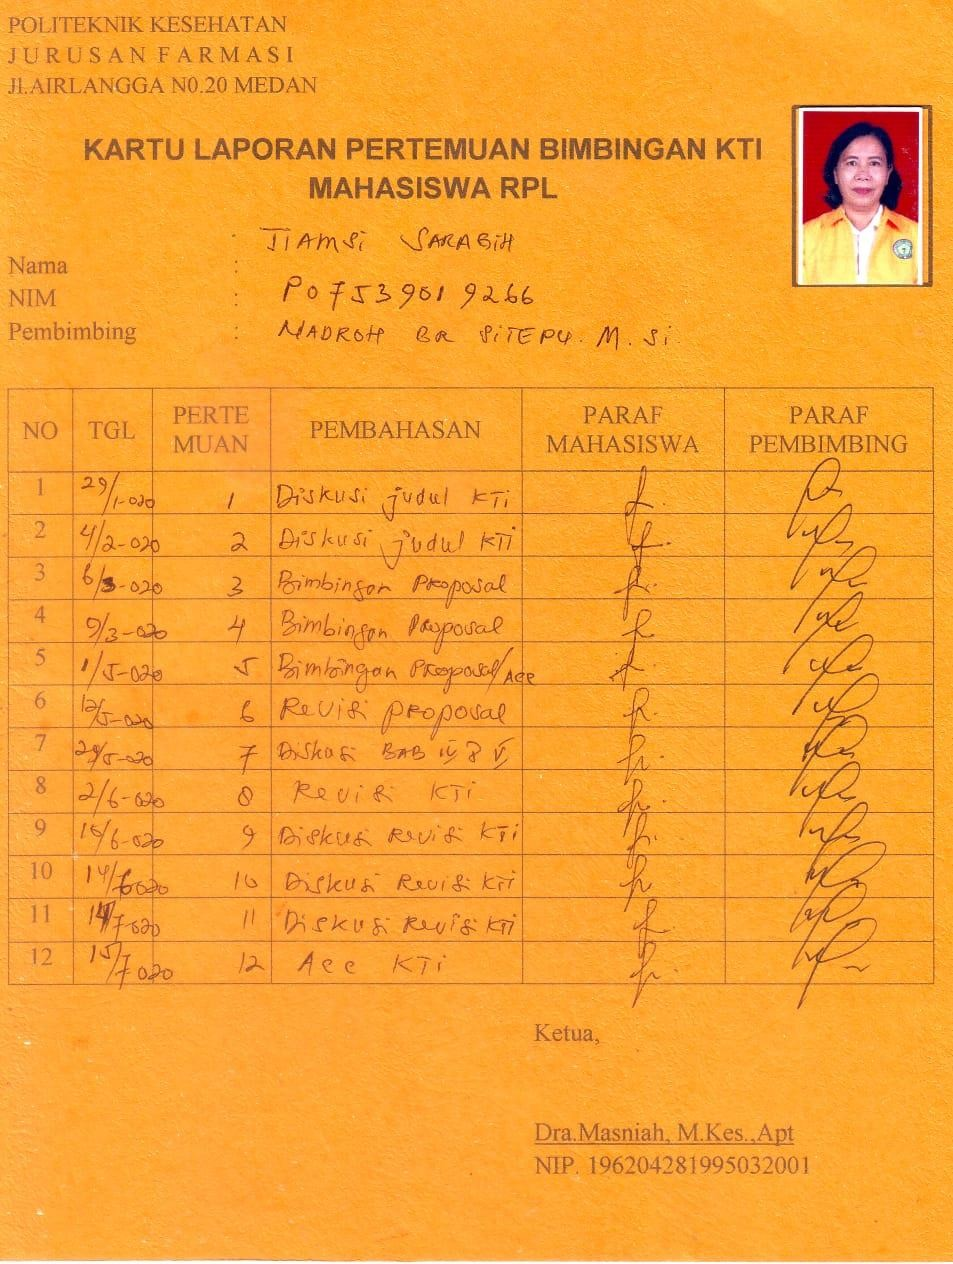 POLITEKNIK KESEHATAN
JURUSAN FARMASI
Jl.AIRLANGGA N0.20 MEDAN
KARTU LAPORAN PERTEMUAN BIMBINGAN KTI
MAHASISWA RPL
Nama : TIAMSi SARAGIH
NIM : P07539019266
Pembimbing : MADROH BR SiTEPU. M. Si.
NO TGL PERTE MUAN PEMBAHASAN PARAF MAHASISWA PARAF PEMBIMBING
1 29/1-020 1 Diskusi judul KTi
2 4/2-020 2 Diskusi judul KTi
3 6/3-020 3 Bimbingan Proposal
4 9/3-020 4 Bimbingan Proposal
5 1/5-020 5 Bimbingan Proposal/Acc
6 12/5-020 6 Revisi proposal
7 7 Diskusi BAB IV & V
8 2/6-020 8 Revisi KTi
9 9 Diskusi Revisi KTi
10 14/6-020 10 Diskusi Revisi KTi
11 11 Diskusi Revisi KTi
12 15/7 020 12 Acc KTi
Ketua,
Dra.Masniah, M.Kes.,Apt
NIP. 196204281995032001